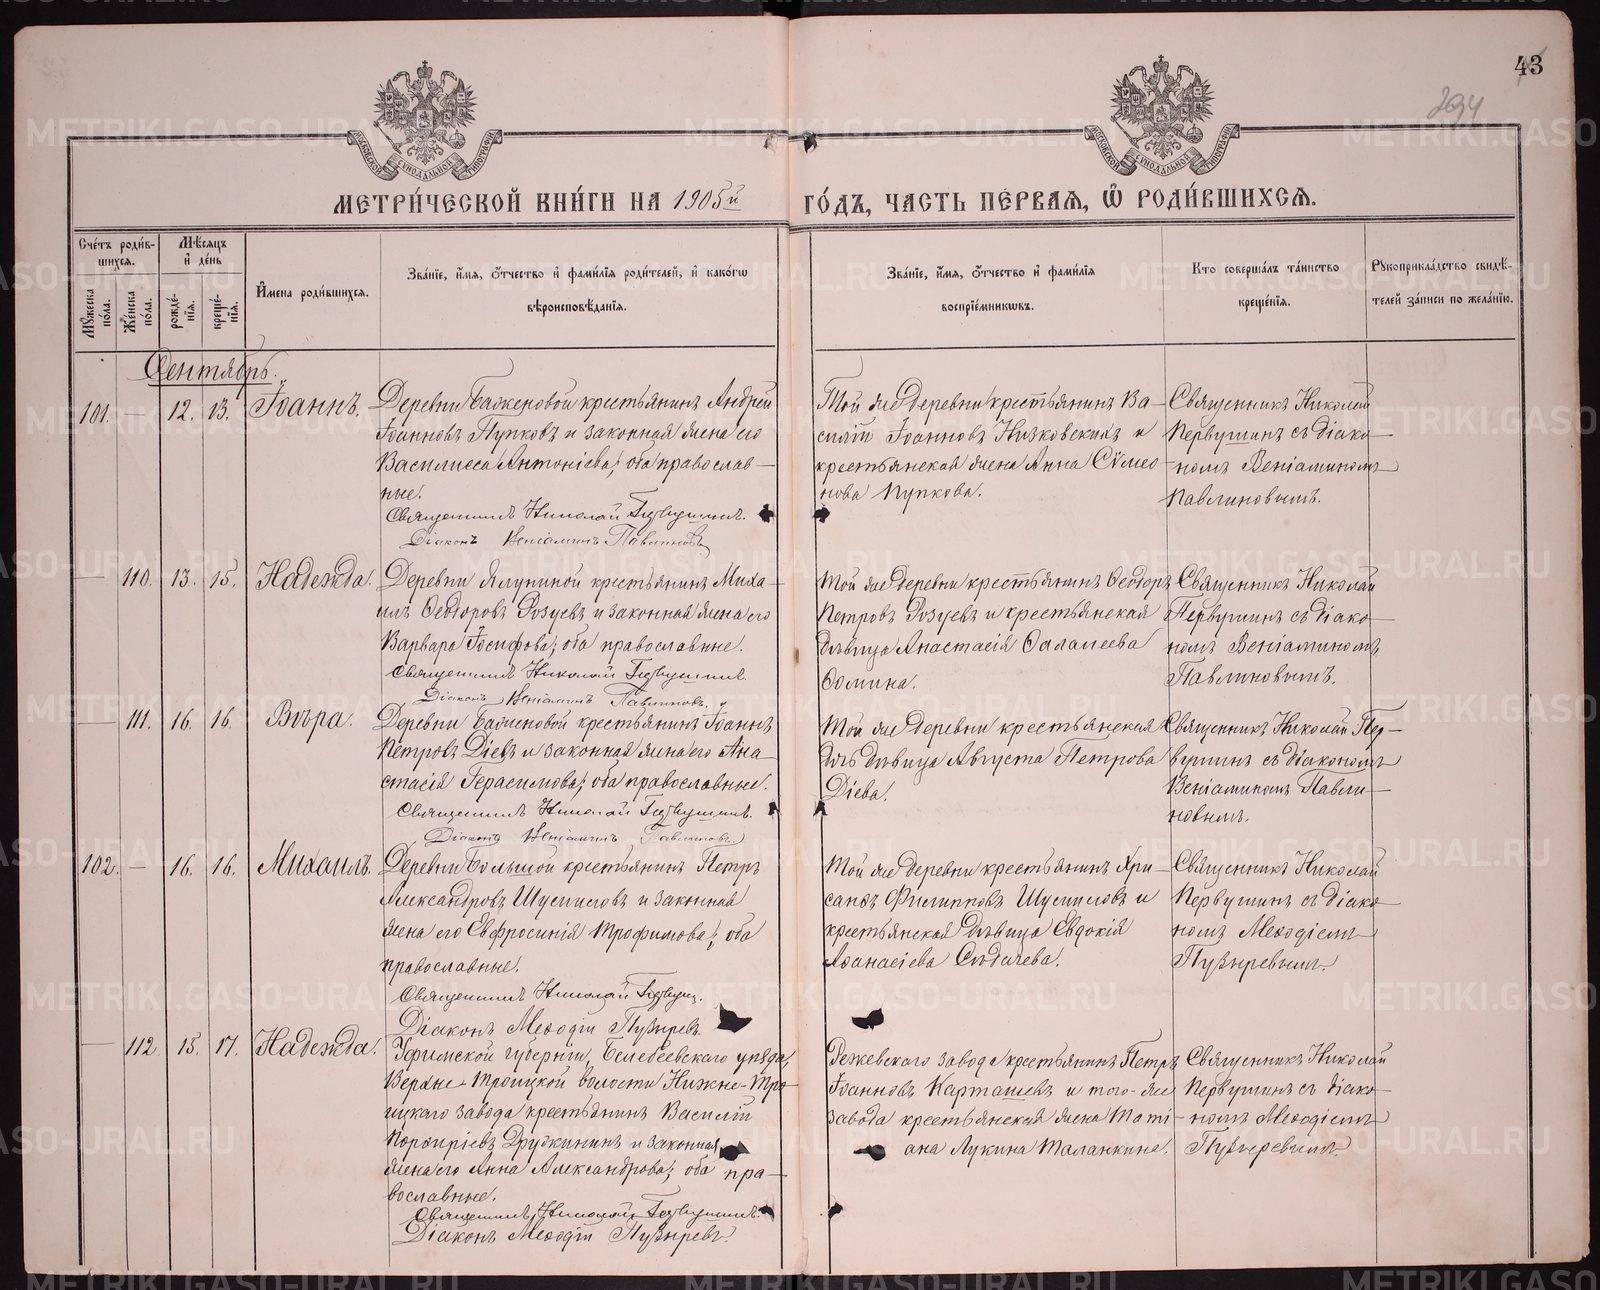 43
294
МОСКОВСКОЙ СѴНОДАЛЬНОЙ ТИПОГРАФІИ
МОСКОВСКОЙ СѴНОДАЛЬНОЙ ТИПОГРАФІИ
МЕТРИ́ЧЕСКОЙ КНИ́ГИ НА 1905й ГО́ДЪ, ЧАСТЬ ПЕ́РВАѦ, Ѽ РОДИ́ВШИХСѦ.
Сче́тъ роди́в-
шихсѧ.
Мꙋ́жеска по́ла.
Же́нска по́ла.
Мѣ́сѧцъ и҆ де́нь
рожде́-
нїѧ.
креще́-
нїѧ.
И҆мена роди́вшихсѧ.
Зва́нїе, и҆́мѧ, ѻ҆́тчество и҆ фами́лїѧ роди́телей, и҆ како́гѡ
вѣроисповѣ́данїѧ.
Зва́нїе, и҆́мѧ, ѻ҆́тчество и҆ фами́лїѧ
воспрїе́мникѡвъ.
Кто соверша́лъ та́инство
креще́нїѧ.
Рꙋкоприкла́дство свидѣ́-
телей за́писи по жела́нїю.
Сентябрь.
101. — 12. 13. Іоаннъ.
Деревни Баженовой крестьянинъ Андрей
Іоанновъ Пупковъ и законная жена его
Василиса Антоніева; оба православ—
ные.
Священникъ Николай Первушинъ.
Діаконъ Веніаминъ Павлиновъ
Той же деревни крестьянинъ Ва—
силій Іоанновъ Низковскихъ и
крестьянская жена Анна Сѵмео
нова Пупкова.
Священникъ Николай
Первушинъ съ діако—
номъ Веніаминомъ
Павлиновымъ.
— 110. 13. 15. Надежда.
Деревни Ялуниной крестьянинъ Миха—
илъ Ѳеодоровъ Розуевъ и законная жена его
Варвара Іосифова; оба православные.
Священникъ Николай Первушинъ.
Діаконъ Веніаминъ Павлиновъ.
Той же деревни крестьянинъ Ѳеодоръ
Петровъ Розуевъ и крестьянская
дѣвица Анастасія
Ѳомина.
Священникъ Николай
Первушинъ съ діако—
номъ Веніаминомъ
Павлиновымъ.
— 111. 16. 16. Вѣра.
Деревни Баженовой крестьянинъ Іоаннъ
Петровъ Діевъ и законная жена его Ана
стасія Герасимова; оба православные.
Священникъ Николай Первушинъ.
Діаконъ Веніаминъ Павлиновъ
Той же деревни крестьянская
дочь дѣвица Августа Петрова
Діева.
Священникъ Николай Пер—
вушинъ съ діакономъ
Веніаминомъ Павли—
новымъ.
102. — 16. 16. Михаилъ.
Деревни Большой крестьянинъ Петръ
Александровъ Шусписовъ и законная
жена его Евфросинія Трофимова; оба
православные.
Священникъ Николай Первуш.
Діаконъ Меѳодій Пузыревъ.
Той же деревни крестьянинъ Хри—
санѳъ Филипповъ Шусписовъ и
крестьянская дѣвица Евдокія
Аѳанасіева Слѣдачева.
Священникъ Николай
Первушинъ съ діако
номъ Меѳодіемъ
Пузыревымъ.
— 112 15. 17. Надежда.
Уфимской губерніи, Белебеевскаго уѣзда,
Верхне-Троицкой волости Нижне-Тро—
ицкаго завода крестьянинъ Василій
Порфиріевъ Дружининъ и законная
жена его Анна Александрова; оба пра—
вославные.
Священникъ Николай Первушинъ.
Діаконъ Меѳодій Пузыревъ.
Режевскаго завода крестьянинъ Петръ
Іоанновъ Карташевъ и того-же
завода крестьянская жена Таті—
ана Лукина Таланкина.
Священникъ Николай
Первушинъ съ діако—
номъ Меѳодіемъ
Пузыревымъ.